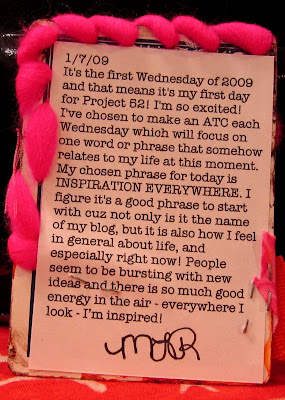 1/7/09
It's the first Wednesday of 2009
and that means it's my first day
for Project 52! I'm so excited!
I've chosen to make an ATC each
Wednesday which will focus on
one word or phrase that somehow
relates to my life at this moment.
My chosen phrase for today is
INSPIRATION EVERYWHERE. I
figure it's a good phrase to start
with cuz not only is it the name
of my blog, but it is also how I feel
in general about life, and
especially right now! People
seem to be bursting with new
ideas and there is so much good
energy in the air - everywhere I
look - I'm inspired!